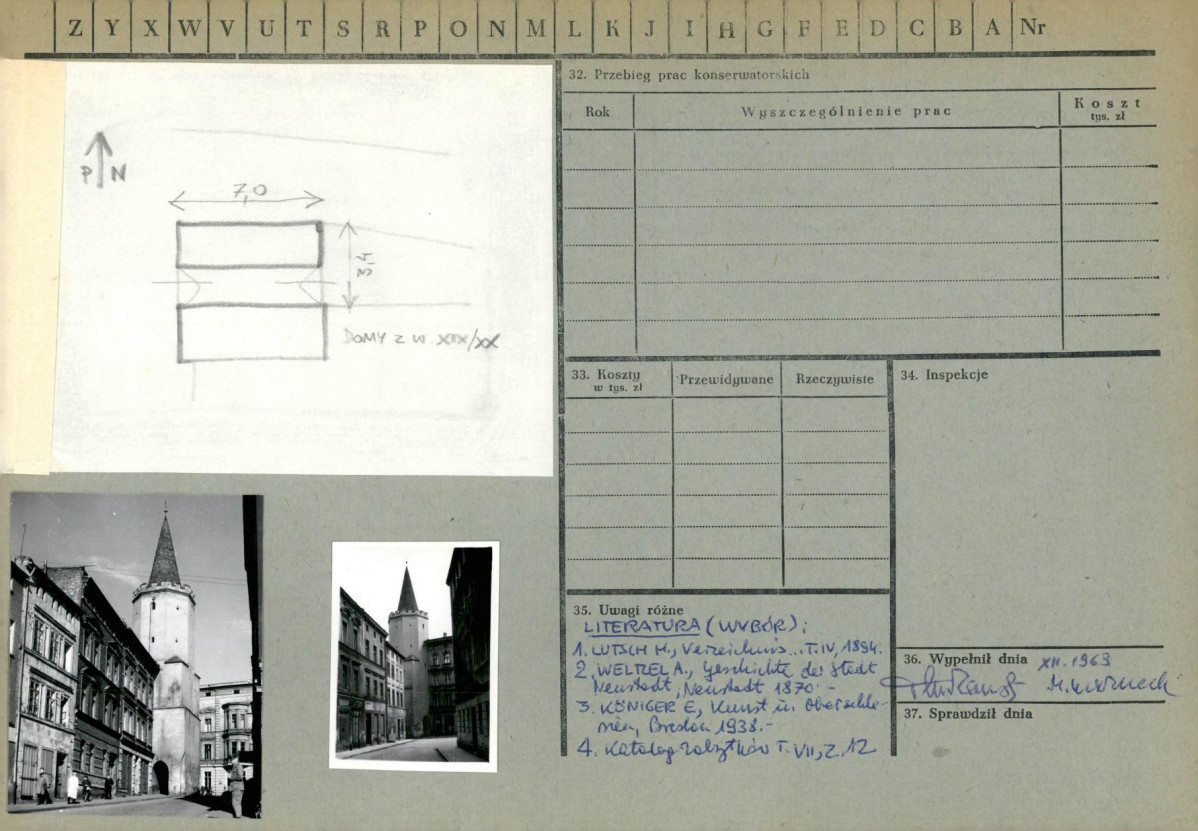 Z Y X W V U T S R P O N M L K J I H G F E D C B A Nr
P N
7,0
3,4
DOMY Z W. XIX/XX
32. Przebieg prac konserwatorskich
Rok Wyszczególnienie prac Koszt
tys. zł
33. Koszty
w tys. zł
Przewidywane Rzeczywiste
34. Inspekcje
35. Uwagi różne
LITERATURA (WYBÓR):
1. LUTSCH H., Verzeichnis... T. IV, 1894.
2. WELTZEL A., Geschichte der Stadt
Neustadt, Neustadt 1870.-
3. KÖNIGER E, Kunst in Oberschle-
sien, Breslau 1938.-
4. Katalog zabytków T. VII, z. 12
36. Wypełnił dnia XII. 1963
37. Sprawdził dnia